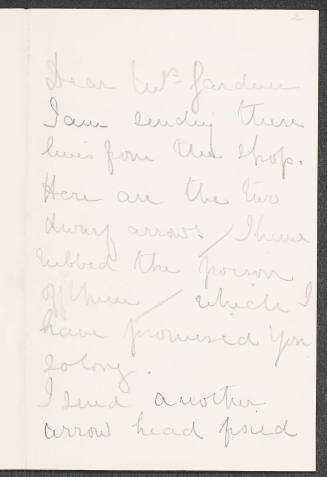 2
Dear Mrs. Gardner
I am sending these
lines from the shop.
Here are the two
dwarf arrows / I have
rubbed the poison
off them / which I
have promised you
so long.
I send another
arrow head